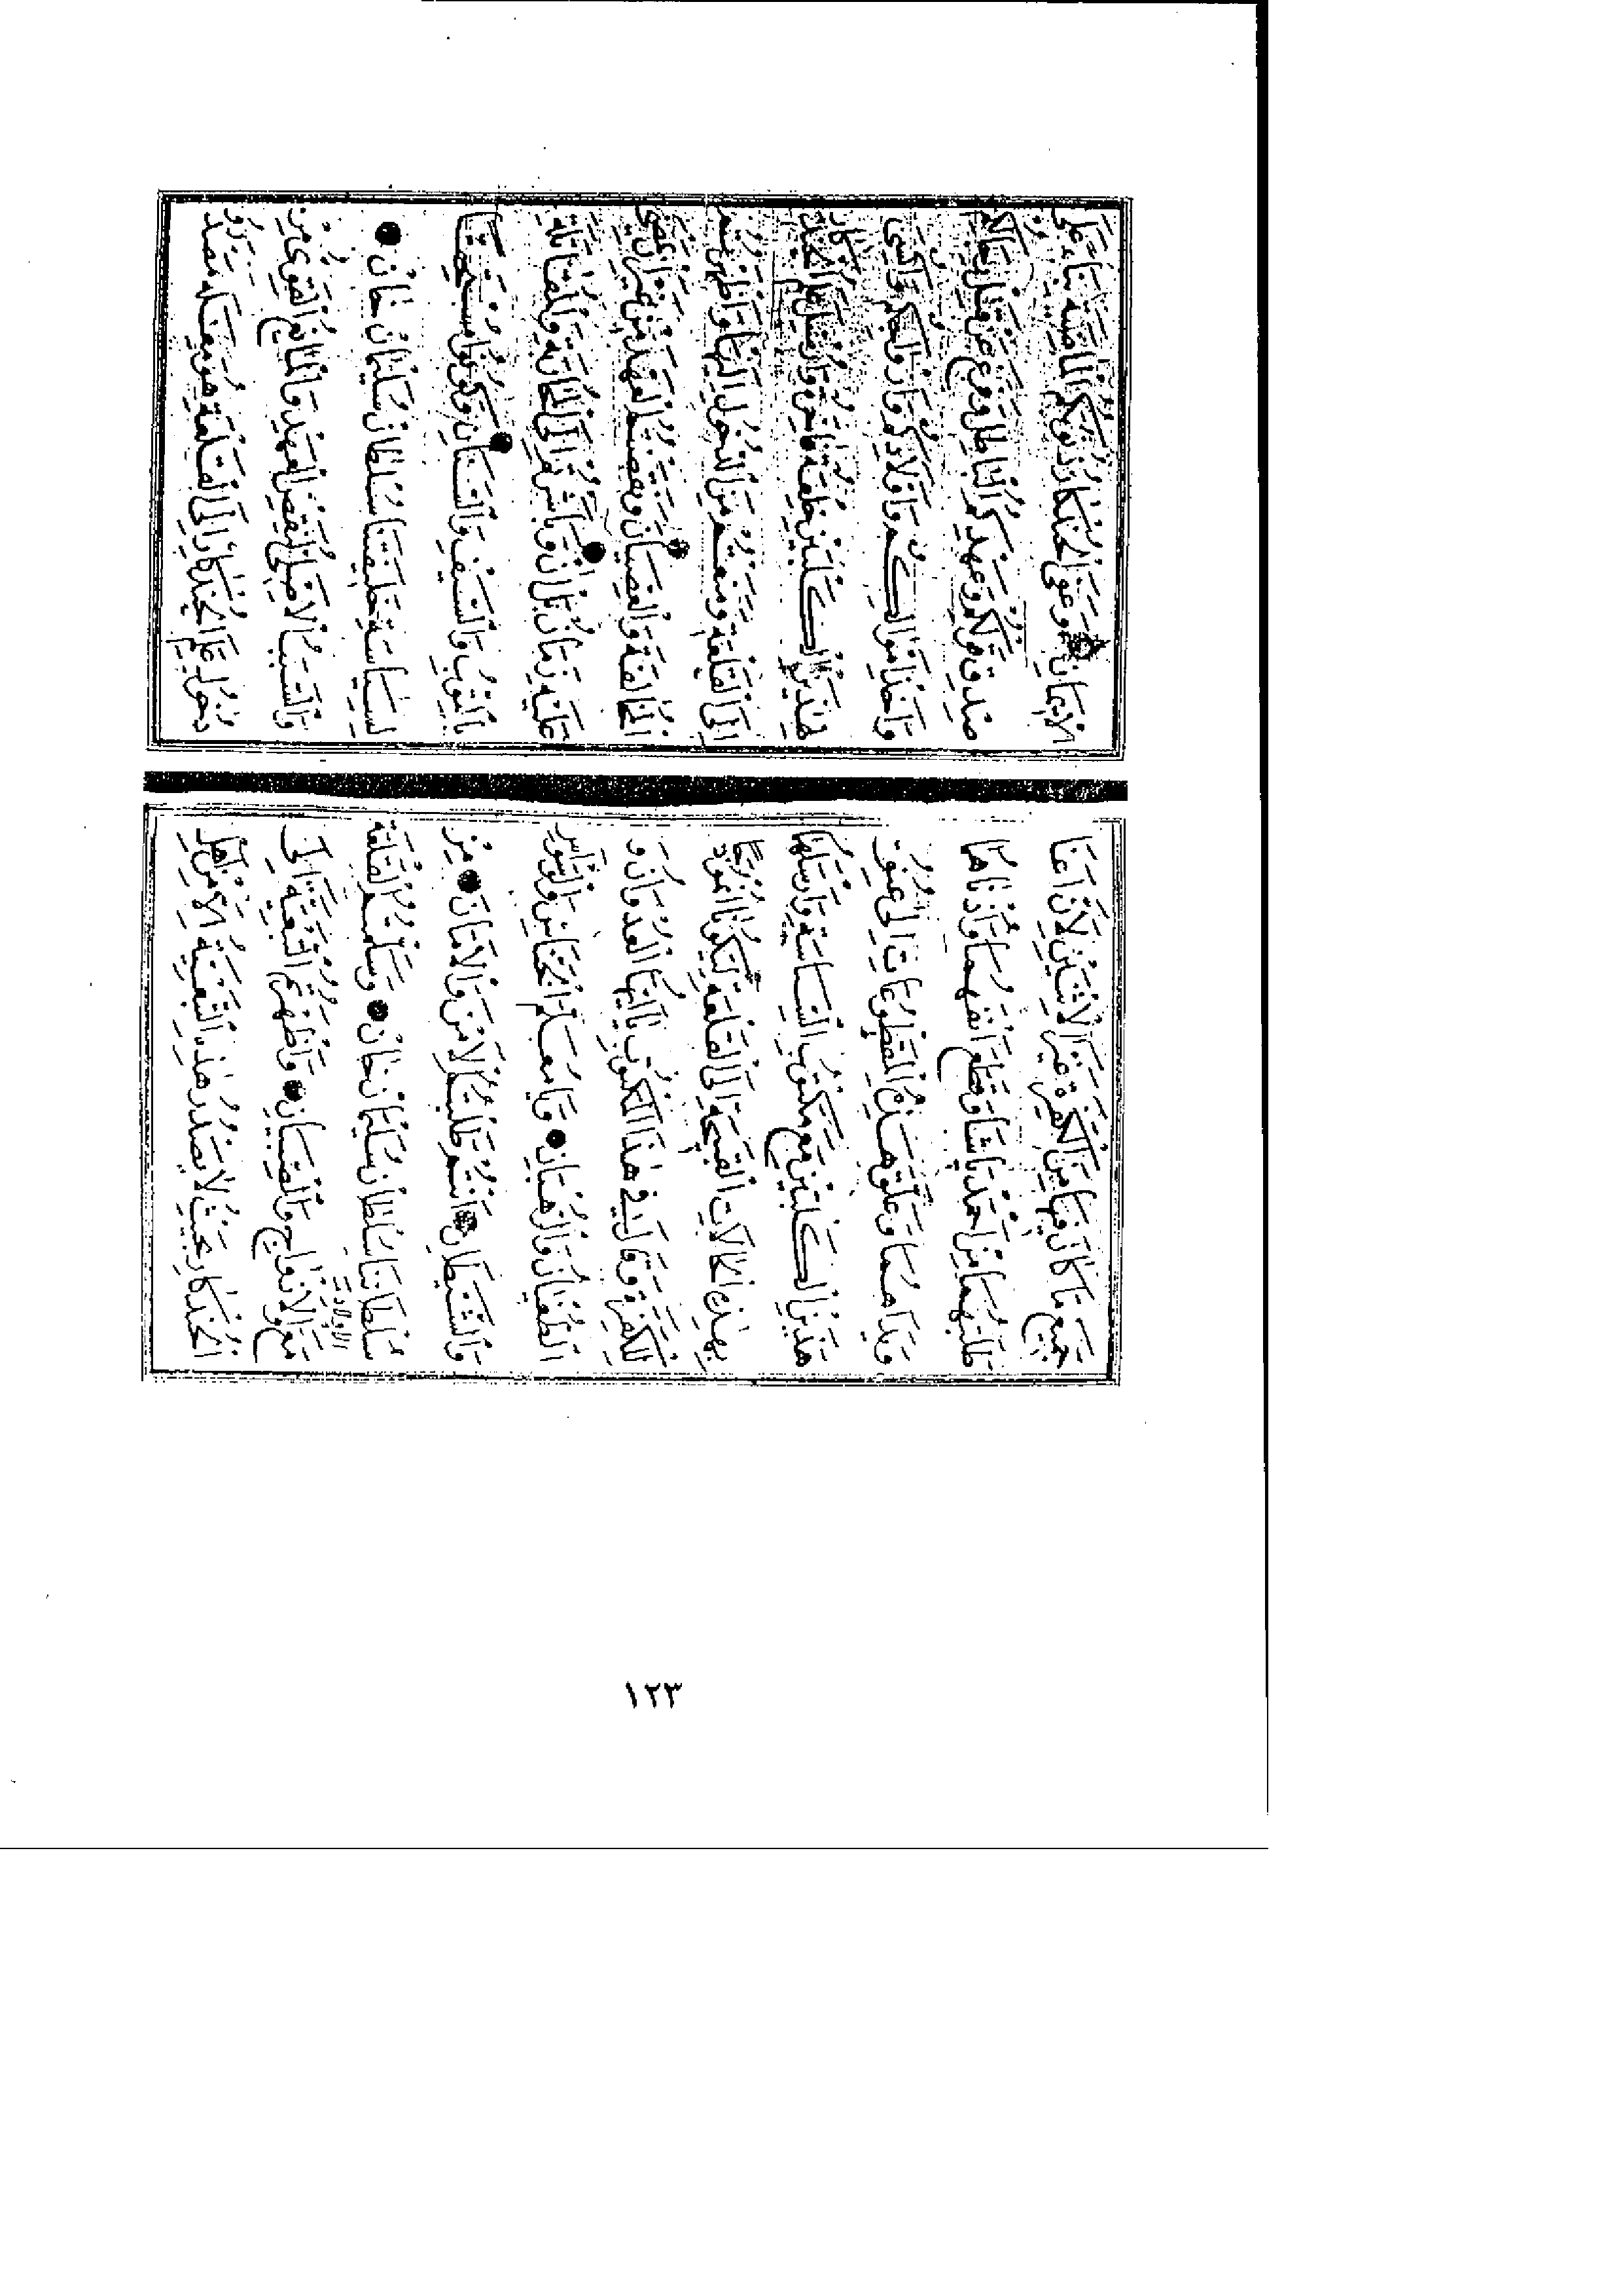 جميع ما كان فيها من الكفرة غير الاثنين لان اغنا
طلبهما من احمد باشا وقطع انفهما واذناهما
ويداهما وعلق هذه المقطوعات الى عنق
هذين الكلبين مع مكتوب السياسة وارسلهما
بهذه الحالات القبيحة الى القلعة ليكونا انموذجا
للكفرة وقال في هذا المكتوب يا ايها العدوان و
الطغيان والرهبان ويا معلم الخناس والوسواس
والشيطان انتم طلبتم الامن والامان من
سلطاننا سلطان سليمان خان وسلمتم القلعة
مع والصبيان واظهرتم التبعية الى
الخنكار بحيث لا يصدر هذه التبعية الا من اهل
الايمان وعفى الخنكار ذنوبكم الماضية بناء على
صدق قولكم وعهدكم الباطل ورجع عن قتل رجالكم
واخذ اموالكم واولادكم وازواجكم والبس
هذين الكلبين خلعة فاخرة وارسل غلام الخنكار
الى القلعة ومنعتم من الدخول اليها واظهرتم
المخالفة والعصيان ونقضتم العهد من غير ان يمضى
عليه زمان بل ان وباشرتم الى المحاربة والمقاتلة
بالتوب والسيف والسنان وتكونوا مستحقا
لسياسة خليفتنا سلطان سليمان خان
والسبب الاصلى لنقض العهد والمانع القوى من
دخول غلام الخنكار الى القلعة هو
١٢٣